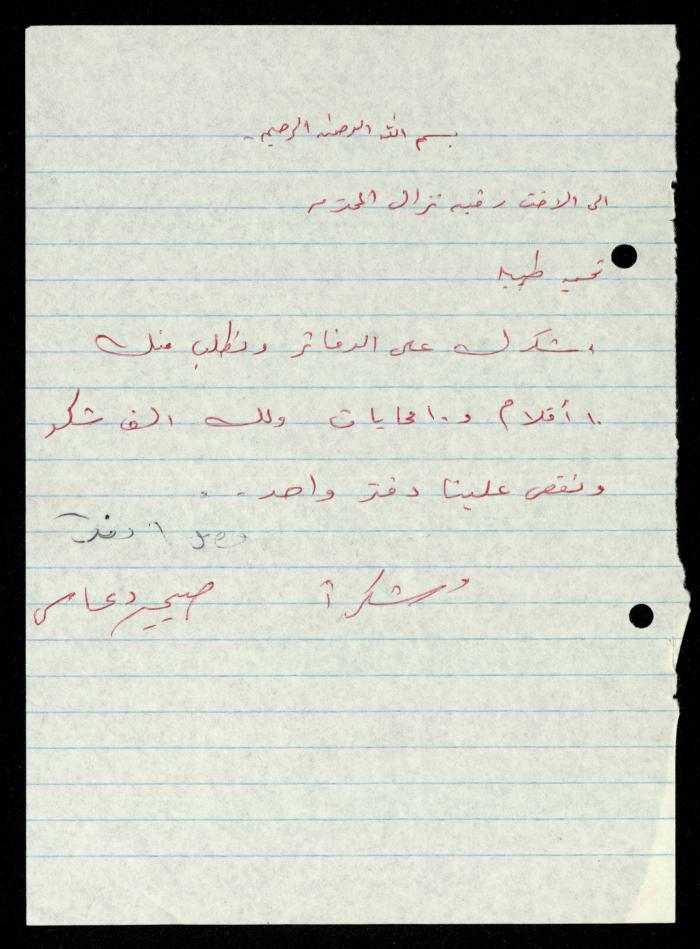 بسم الله الرحمن الرحيم
الى الاخت رقيه نزال المحترمه
تحيه طيبه
اشكرك على الدفاتر ونطلب منك
١٠ أقلام و ١٠ محايات ولك الف شكر
ونقص علينا دفتر واحد . .
وصل ١ دفتر
وشكراً